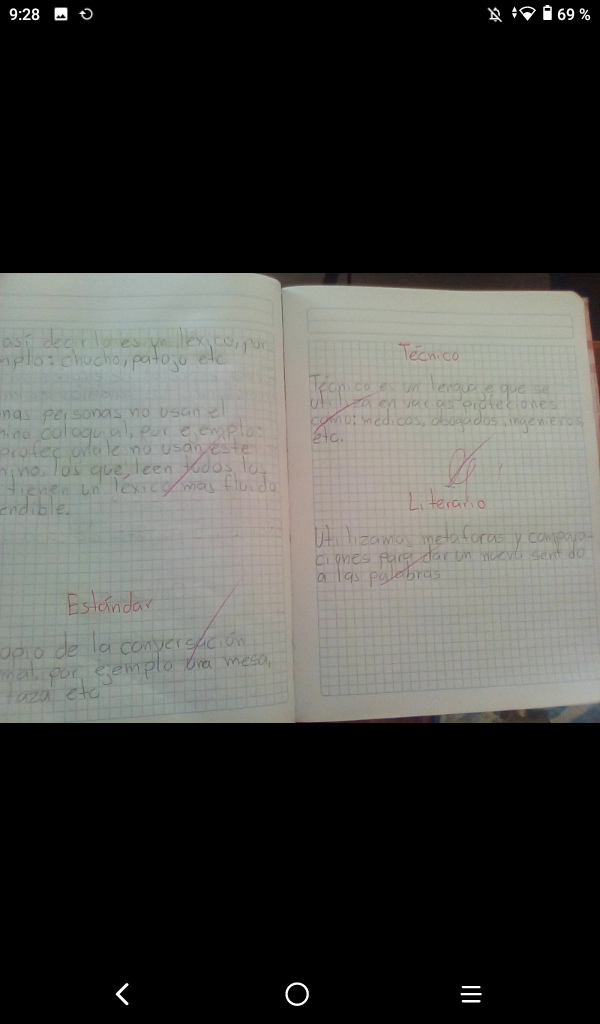 9:28
69 %
así decirlo es un léxico, por
mplo: chucho, patojo etc
nas personas no usan el
mino coloquial, por ejemplo:
no usan este
mino, los que leen todos lo
tienen un léxico mas fluido
endible.
Estándar
opio de la conversación
mal, por ejemplo una mesa,
taza etc
Técnico
Técnico es un lenguaje que se
utiliza en varias profeciones
como: medicos, abogados, ingenieros,
etc.
Literario
Utilizamos metaforas y compara-
ciones para dar un nuevo sentido
a las palabras